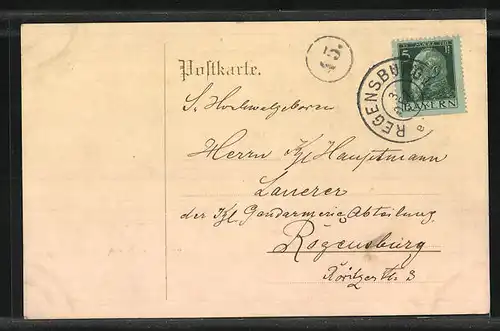 Postkarte.
15.
5 5
BAYERN
REGENSBURG
S. Hochwohlgeboren
Herrn Kgl Hauptmann
Lauerer
der Kgl. Gendarmerie Abteilung
Regensburg
Roritzerstr. 3